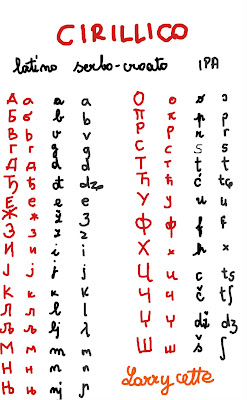 CIRILLICO
latino serbo-croato IPA
А а a a
Б б b b
В в v v
Г г g g
Д д d d
Ђ ђ đ dʑ
Е е e e
Ж ж ž ʒ
З з z z
И и i i
Ј ј j j
К к k k
Л л l l
Љ љ lj ʎ
М м m m
Н н n n
Њ њ nj ɲ
О о o ɔ
П п p p
Р р r r
С с s s
Т т t t
Ћ ћ ć tɕ
У у u u
Ф ф f f
Х х h x
Ц ц c ts
Ч ч č tʃ
Џ џ dž dʒ
Ш ш š ʃ
Larry cette